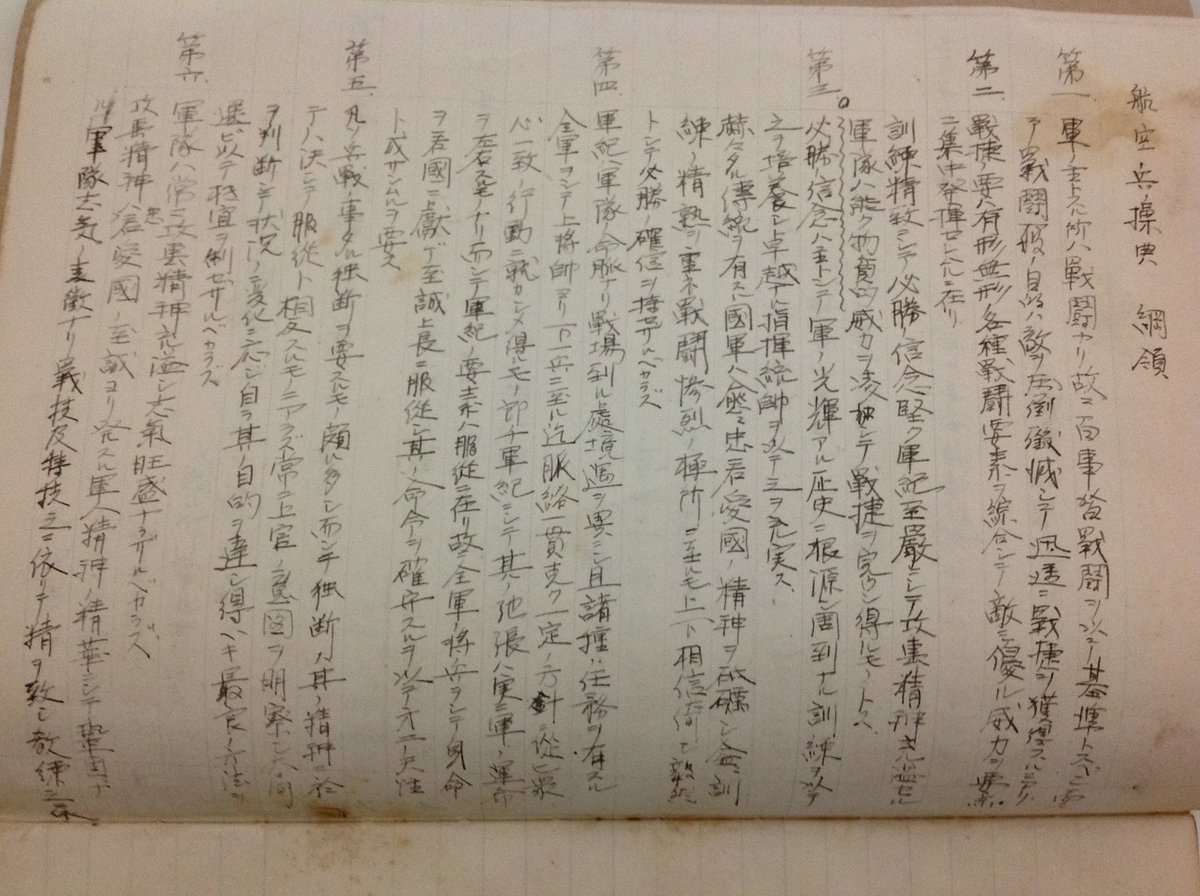 航空兵操典 綱領
第一 軍ノ主トスル所ハ戰鬪ナリ故ニ百事皆戰鬪ヲ以テ基準トスベシ而
テ戰鬪一般ノ目的ハ敵ヲ圧倒殲滅シテ迅速ニ戰捷ヲ獲得スルニアリ
第二 戰捷ノ要ハ有形無形ノ各種戰鬪要素ヲ綜合シテ敵ニ優ル威力ヲ要点
ニ集中発揮セシムルニ在リ
訓練精致ニシテ必勝ノ信念堅ク軍紀至嚴ニシテ攻撃精神充溢セル
軍隊ハ能ク物質的威力ヲ凌駕シテ戰捷ヲ完ウシ得ルモノトス
第三 必勝ノ信念ハ主トシテ軍ノ光輝アル歴史ニ根源シ周到ナル訓練ヲ以テ
之ヲ培養シ卓越ナル指揮統帥ヲ以テ之ヲ充実ス
赫々タル傳統ヲ有スル國軍ハ愈々忠君愛國ノ精神ヲ砥礪シ益々訓
練ノ精熟ヲ重ネ戰鬪惨烈ノ極所ニ至ルモ上下相信倚シ毅然
トシテ必勝ノ確信ヲ持セザルベカラズ
第四 軍紀ハ軍隊ノ命脈ナリ戰場到ル處境遇ヲ異ニシ且諸種ノ任務ヲ有スル
全軍ヲシテ上將帥ヨリ下一兵ニ至ル迄脈絡一貫克ク一定ノ方針ニ從ヒ衆
心一致ノ行動ニ就カシメ得ルモノ即チ軍紀ニシテ其ノ弛張ハ実ニ軍ノ運命
ヲ左右スルモノナリ而シテ軍紀ノ要素ハ服從ニ在リ故ニ全軍ノ將兵ヲシテ身命
ヲ君國ニ獻ゲ至誠上長ニ服從シ其ノ命令ヲ確守スルヲ以テ第二ノ天性
ト成サシムルヲ要ス
第五 凡ソ兵戰ノ事タル独断ヲ要スルモノ頗ル多シ而シテ独断ハ其ノ精神ニ於
テハ決シテ服從ト相反スルモノニアラズ常ニ上官ノ意図ヲ明察シ大局
ヲ判断シテ状況ノ変化ニ応ジ自ラ其ノ目的ヲ達シ得ベキ最良ノ方法ヲ
選ビ以テ機宜ヲ制セザルベカラズ
第六 軍隊ハ常ニ攻撃精神充溢シ士氣旺盛ナラザルベカラズ
攻撃精神ハ忠君愛國ノ至誠ヨリ発スル軍人精神ノ精華ニシテ鞏固ナ
ル軍隊士氣ノ表徴ナリ戰技及特技之ニ依リテ精ヲ致シ教練之ニ